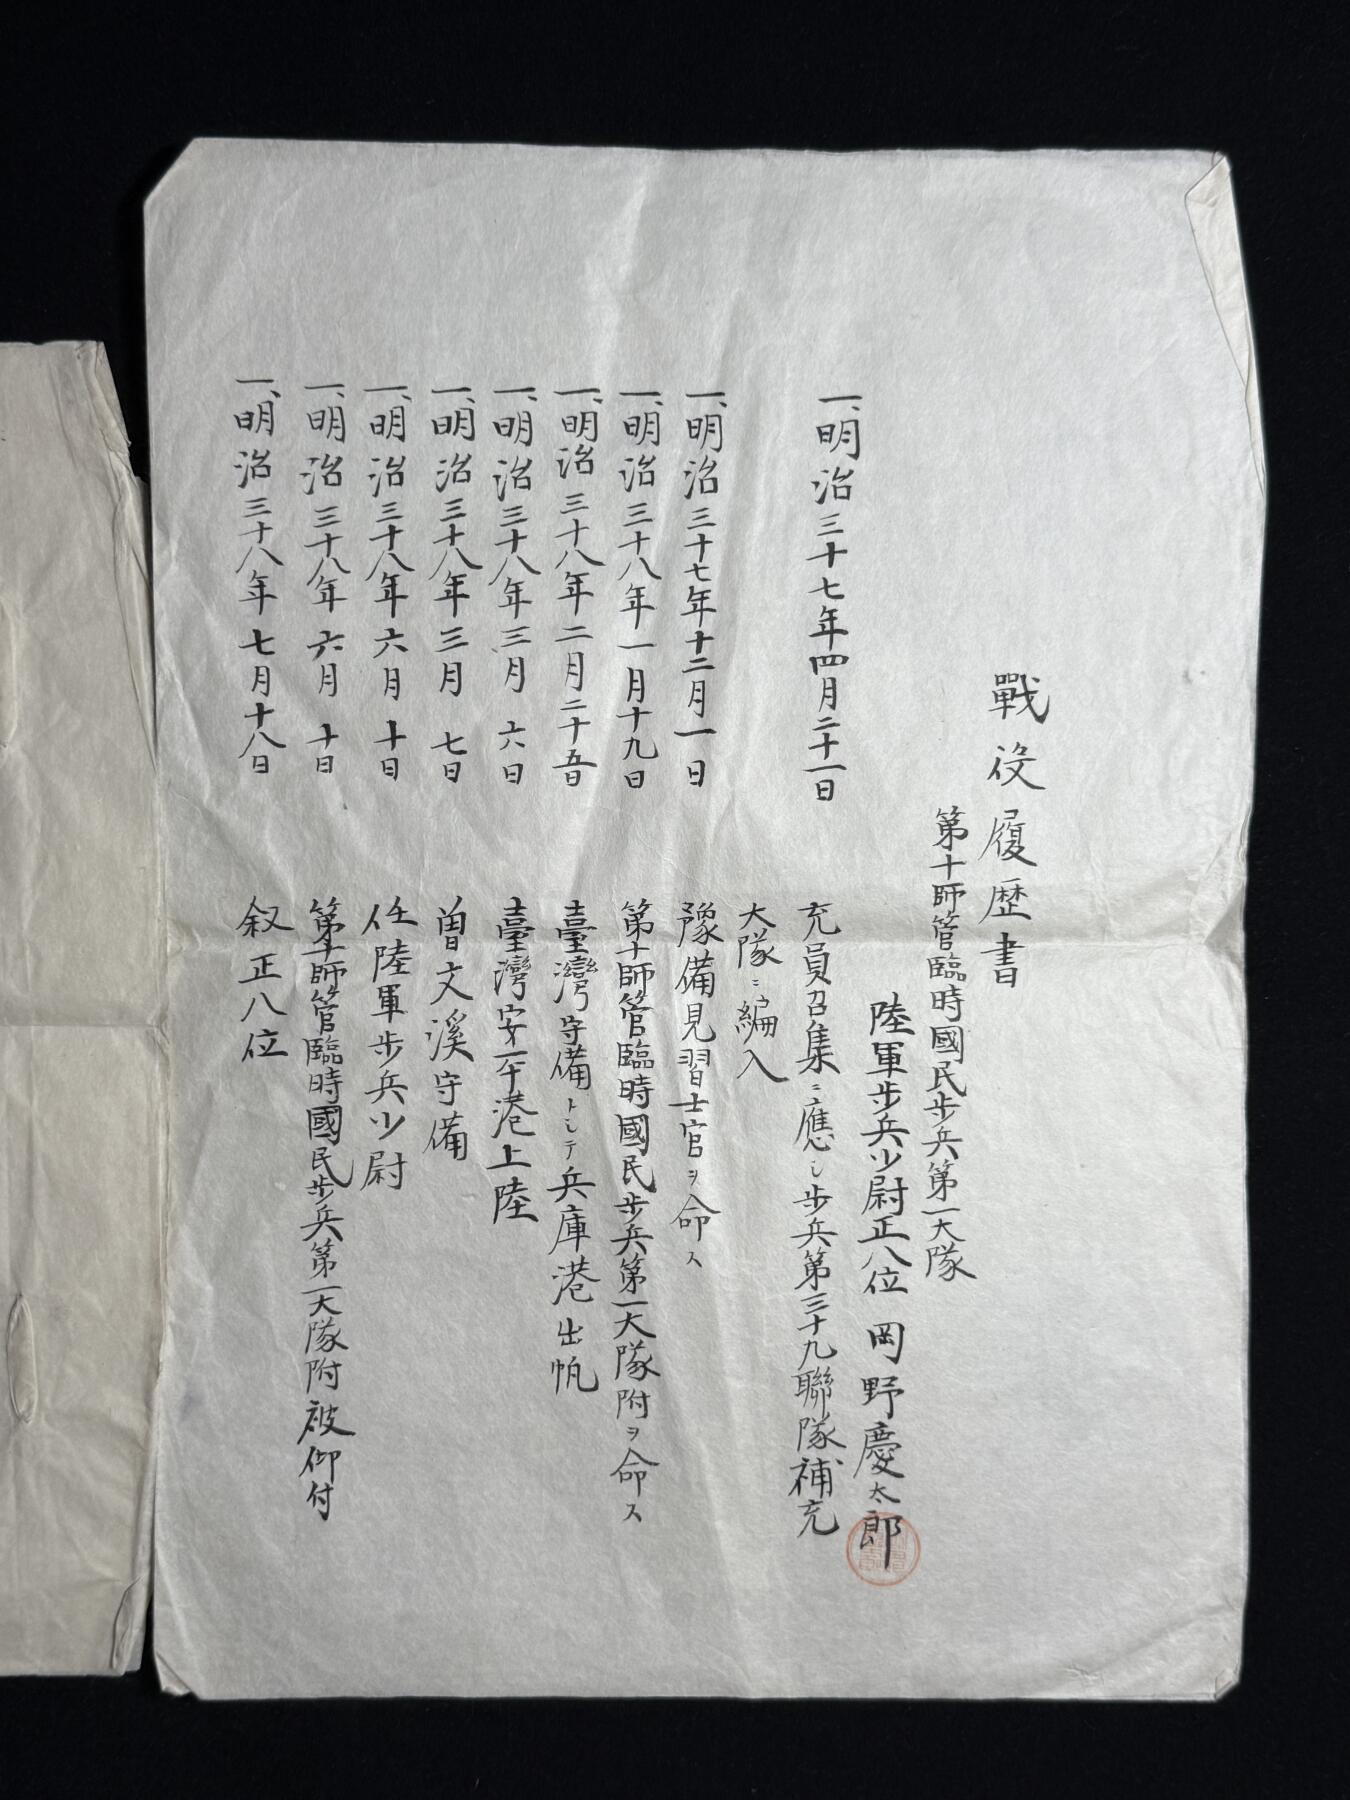 戰役履歴書
第十師管臨時國民歩兵第一大隊
陸軍歩兵少尉正八位 岡野慶太郎
一、明治三十七年四月二十一日 充員召集ニ應シ歩兵第三十九聯隊補充
大隊ニ編入
一、明治三十七年十二月一日 豫備見習士官ヲ命ス
一、明治三十八年一月十九日 第十師管臨時國民歩兵第一大隊附ヲ命ス
一、明治三十八年二月二十五日 臺灣守備トシテ兵庫港出帆
一、明治三十八年三月 六日 臺灣安平港上陸
一、明治三十八年三月 七日 曽文溪守備
一、明治三十八年六月 十日 任陸軍歩兵少尉
一、明治三十八年六月 十日 第十師管臨時國民歩兵第一大隊附被仰付
一、明治三十八年七月十八日 叙正八位